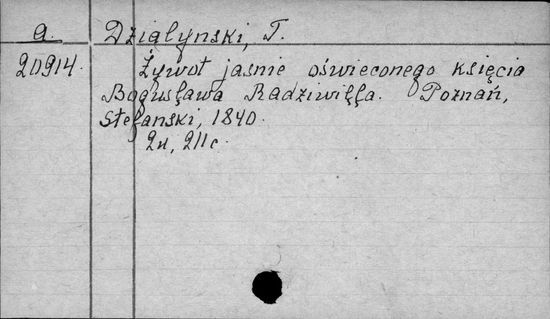 a. Działynski, T.
20914. Żywot jasnie oświeconego księcia
Bogusława Radziwiłła. Poznań,
Stefanski, 1840.
2н, 211с.